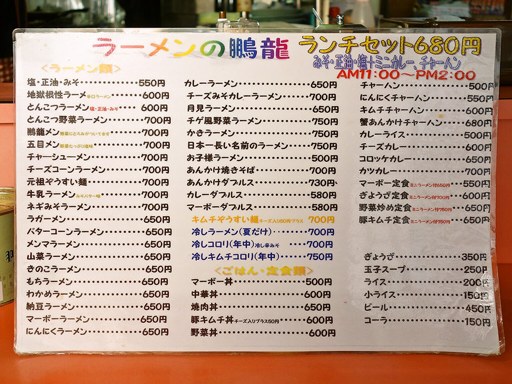 ラーメンの鵬龍
ランチセット680円
みそ・正油・塩+ミニカレー チャーハン
AM11:00~PM2:00
<ラーメン類>
塩・正油・みそ 550円
地獄根性ラーメン 600円
とんこつラーメン 塩・正油・みそ 600円
とんこつ野菜ラーメン 700円
鵬龍メン 700円
五目メン 700円
チャーシューメン 700円
チーズコーンラーメン 700円
元祖ぞうすい麺 700円
牛乳ラーメン 700円
ネギみそラーメン 700円
ラガーメン 650円
バターコーンラーメン 650円
メンマラーメン 650円
山菜ラーメン 650円
きのこラーメン 650円
もちラーメン 650円
わかめラーメン 650円
納豆ラーメン 650円
マーボーラーメン 650円
にんにくラーメン 650円
カレーラーメン 650円
チーズみそカレーラーメン 700円
月見ラーメン 650円
チゲ風野菜ラーメン 750円
かきラーメン 750円
日本一長い名前のラーメン 750円
お子様ラーメン 500円
あんかけ焼きそば 700円
あんかけダフルス 730円
カレーダフルス 580円
マーボーダフルス 580円
キムチぞうすい麺 チーズ入り50円プラス 700円
冷しラーメン(夏だけ) 700円
冷しコロリ(年中) 700円
冷しキムチコロリ(年中) 750円
<ごはん・定食類>
マーボー丼 500円
中華丼 600円
焼肉丼 650円
豚キムチ丼 チーズ入りプラス50円 600円
野菜丼 600円
チャーハン 500円
にんにくチャーハン 550円
キムチチャーハン 600円
蟹あんかけチャーハン 680円
カレーライス 500円
チーズカレー 550円
コロッケカレー 650円
カツカレー 700円
マーボー定食 650円
ぎょうざ定食 600円
野菜炒め定食 650円
豚キムチ定食 650円
ぎょうざ 350円
玉子スープ 250円
ライス 200円
小ライス 150円
ビール 450円
コーラ 150円